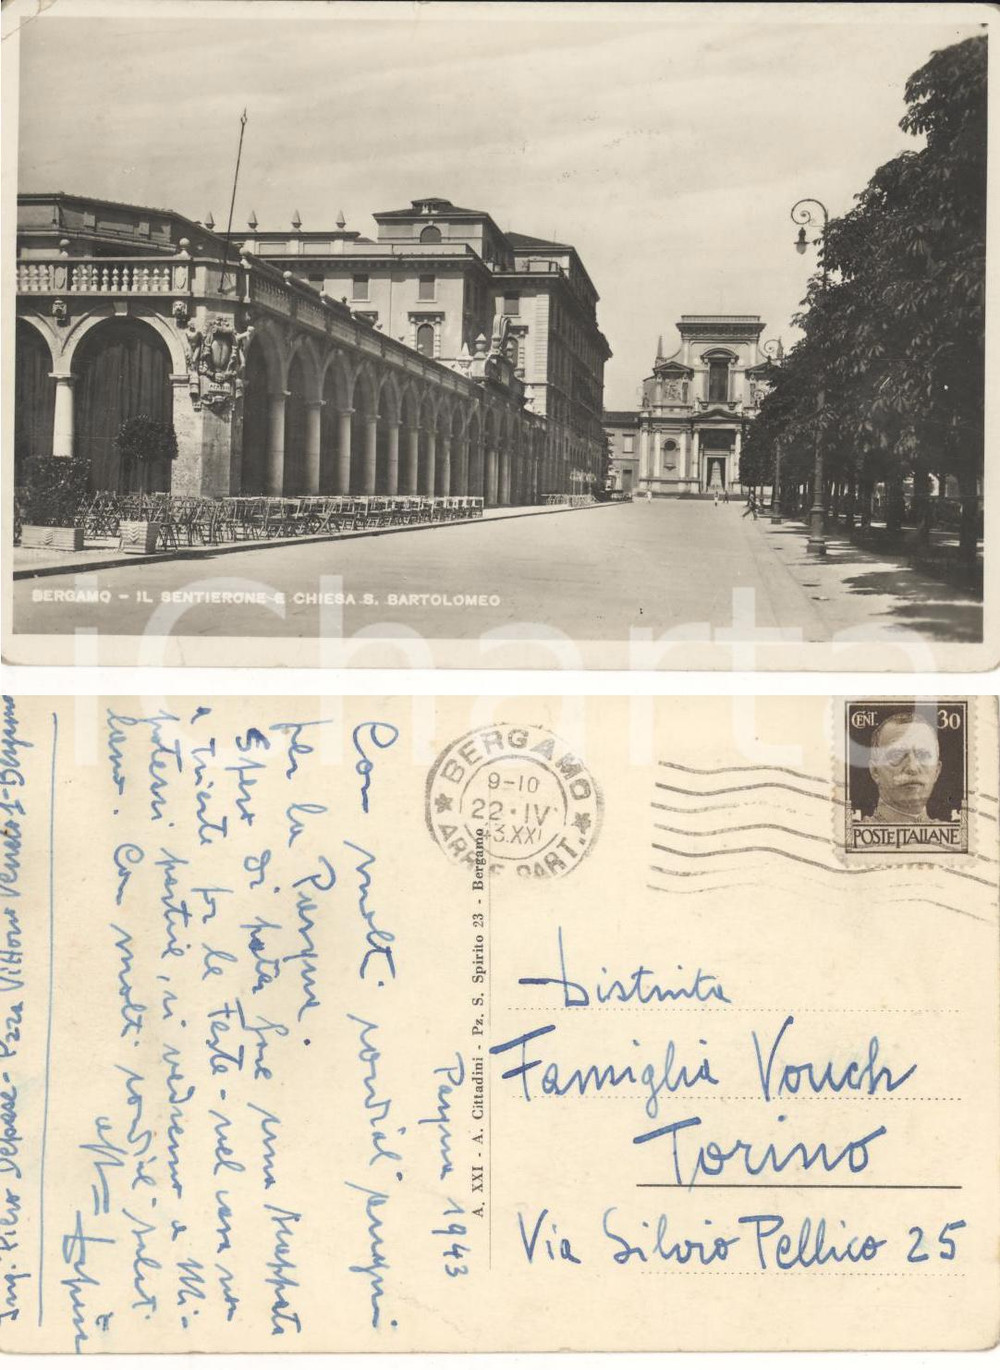 BERGAMO - IL SENTIERONE E CHIESA S. BARTOLOMEO
iCharta
Con molti cordiali auguri
per la Pasqua.
Spero di poter fare una scappata
a Trieste per le Feste - nel caso non
potessi partire, ci vedremo a Mi-
lano. Con molti cordiali saluti
aff
Pasqua 1943
Ing. Piero - Pzza Vittorio Veneto 1 - Bergamo
A. XXI - A. Cittadini - Pz. S. Spirito 23 - Bergamo
BERGAMO
9-10
22·IV
43.XXI
ARR E PART.
CENT. 30
POSTE ITALIANE
Distinta
Famiglia Vouch
Torino
Via Silvio Pellico 25